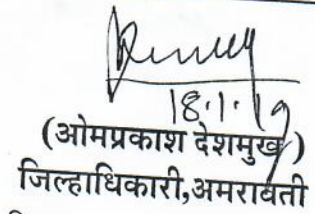 18.1.19
(ओमप्रकाश देशमुख)
जिल्हाधिकारी,अमरावती